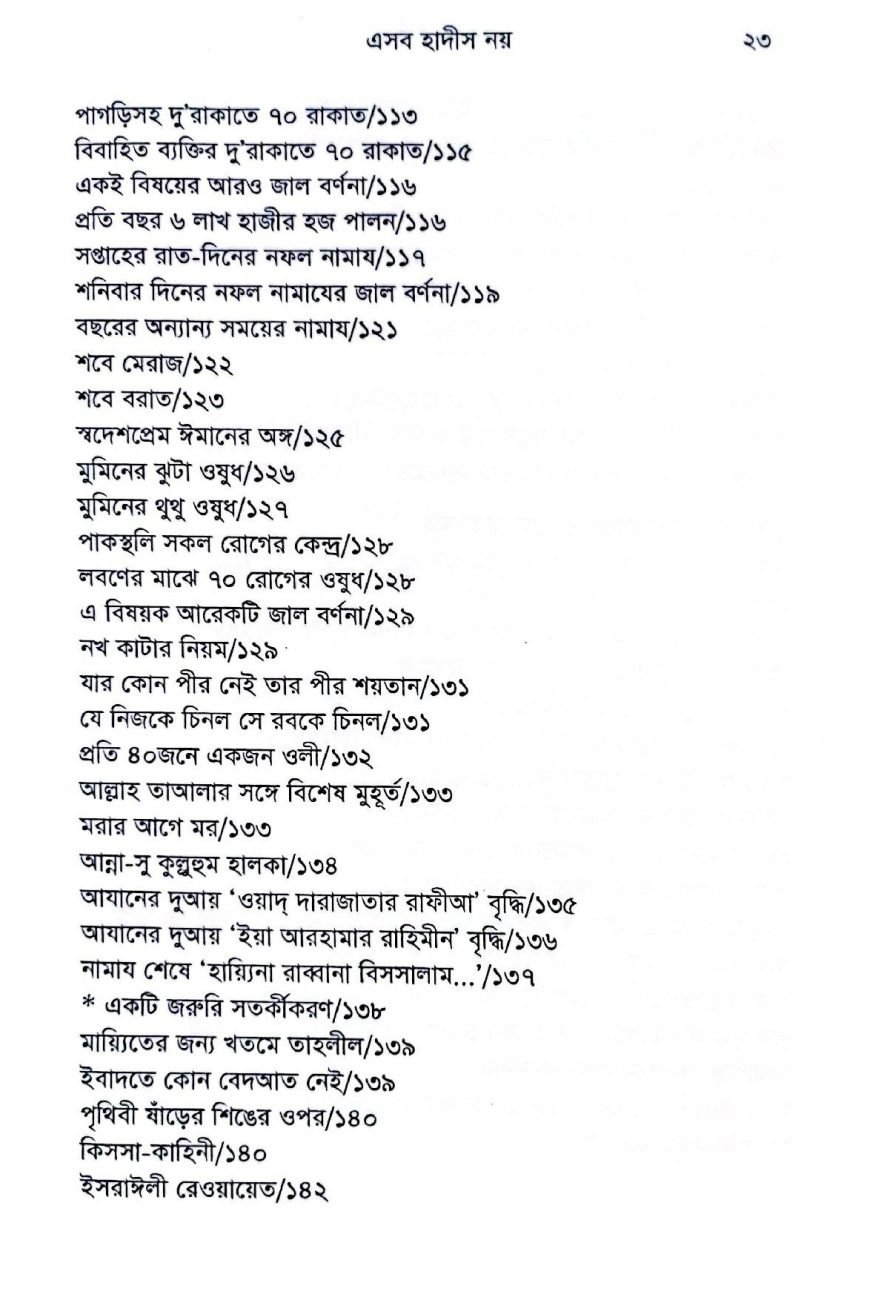 এসব হাদীস নয় ২৩
পাগড়িসহ দু'রাকাতে ৭০ রাকাত/১১৩
বিবাহিত ব্যক্তির দু'রাকাতে ৭০ রাকাত/১১৫
একই বিষয়ের আরও জাল বর্ণনা/১১৬
প্রতি বছর ৬ লাখ হাজীর হজ পালন/১১৬
সপ্তাহের রাত-দিনের নফল নামায/১১৭
শনিবার দিনের নফল নামাযের জাল বর্ণনা/১১৯
বছরের অন্যান্য সময়ের নামায/১২১
শবে মেরাজ/১২২
শবে বরাত/১২৩
স্বদেশপ্রেম ঈমানের অঙ্গ/১২৫
মুমিনের ঝুটা ওষুধ/১২৬
মুমিনের থুথু ওষুধ/১২৭
পাকস্থলি সকল রোগের কেন্দ্র/১২৮
লবণের মাঝে ৭০ রোগের ওষুধ/১২৮
এ বিষয়ক আরেকটি জাল বর্ণনা/১২৯
নখ কাটার নিয়ম/১২৯
যার কোন পীর নেই তার পীর শয়তান/১৩১
যে নিজকে চিনল সে রবকে চিনল/১৩১
প্রতি ৪০জনে একজন ওলী/১৩২
আল্লাহ তাআলার সঙ্গে বিশেষ মুহূর্ত/১৩৩
মরার আগে মর/১৩৩
আন্না-সু কুল্লুহুম হালকা/১৩৪
আযানের দুআয় ‘ওয়াদ্ দারাজাতার রাফীআ’ বৃদ্ধি/১৩৫
আযানের দুআয় ‘ইয়া আরহামার রাহিমীন’ বৃদ্ধি/১৩৬
নামায শেষে ‘হায়্যিনা রাব্বানা বিসসালাম...’/১৩৭
* একটি জরুরি সতর্কীকরণ/১৩৮
মায়্যিতের জন্য খতমে তাহলীল/১৩৯
ইবাদতে কোন বেদআত নেই/১৩৯
পৃথিবী ষাঁড়ের শিঙের ওপর/১৪০
কিসসা-কাহিনী/১৪০
ইসরাঈলী রেওয়ায়েত/১৪২